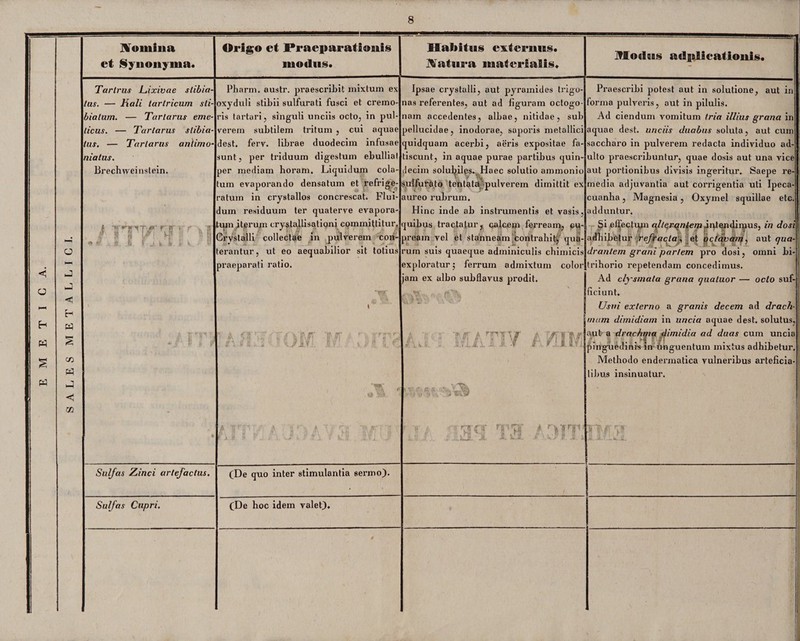 8
Nomina
et Synonyma.
Origo et Praeparationis
modus.
Habitus externus.
Natura materialis.
Modus adplicationis.
EMETICA.
SALES METALLICI.
Tartrus Lixivae stibia-
tus. — Kali tartricum sti-
biatum. — Tartarus eme-
ticus. — Tartarus stibia-
tus. — Tartarus antimo-
niatus.
Brechweinstein.
Pharm. austr. praescribit mixtum ex
oxyduli stibii sulfurati fusci et cremo-
ris tartari, singuli unciis octo, in pul-
verem subtilem tritum, cui aquae
dest. ferv. librae duodecim infusae
sunt, per triduum digestum ebullial
per mediam horam. Liquidum cola-
tum evaporando densatum et refrige-
ratum in crystallos concrescat. Flui-
dum residuum ter quaterve evapora-
tum iterum crystallisationi committitur.
Crystalli collectae in pulverem con-
terantur, ut eo aequabilior sit totius
praeparati ratio.
Ipsae crystalli, aut pyramides trigo-
nas referentes, aut ad figuram octogo-
nam accedentes, albae, nitidae, sub
pellucidae, inodorae, saporis metallici
quidquam acerbi, aëris expositae fa-
tiscunt, in aquae purae partibus quin-
decim solubiles. Haec solutio ammonio
sulfurato tentata pulverem dimittit ex
aureo rubrum.
Hinc inde ab instrumentis et vasis,
quibus tractatur, calcem ferream, cu-
pream vel et stanneam contrahit, qua-
rum suis quaeque adminiculis chimicis
exploratur; ferrum admixtum color
jam ex albo subflavus prodit.
Praescribi potest aut in solutione, aut in
forma pulveris, aut in pilulis.
Ad ciendum vomitum tria illius grana in
aquae dest. unciis duabus soluta, aut cum
saccharo in pulverem redacta individuo ad-
ulto praescribuntur, quae dosis aut una vice
aut portionibus divisis ingeritur. Saepe re-
media adjuvantia aut corrigentia uti Ipeca-
cuanha, Magnesia, Oxymel squillae etc.
adduntur.
Si effectum alterantem intendimus, in dosi
adhibetur refracta, et octavam, aut qua-
drantem grani partem pro dosi, omni bi-
trihorio repetendam concedimus.
Ad clysmata grana quatuor — octo suf-
ficiunt.
Usui externo a granis decem ad drach-
mam dimidiam in uncia aquae dest. solutus,
aut a drachma dimidia ad duas cum uncia
pinguedinis in unguentum mixtus adhibetur.
Methodo endermatica vulneribus arteficia-
libus insinuatur.
Sulfas Zinci artefactus.
(De quo inter stimulantia sermo).
Sulfas Cupri.
(De hoc idem valet).